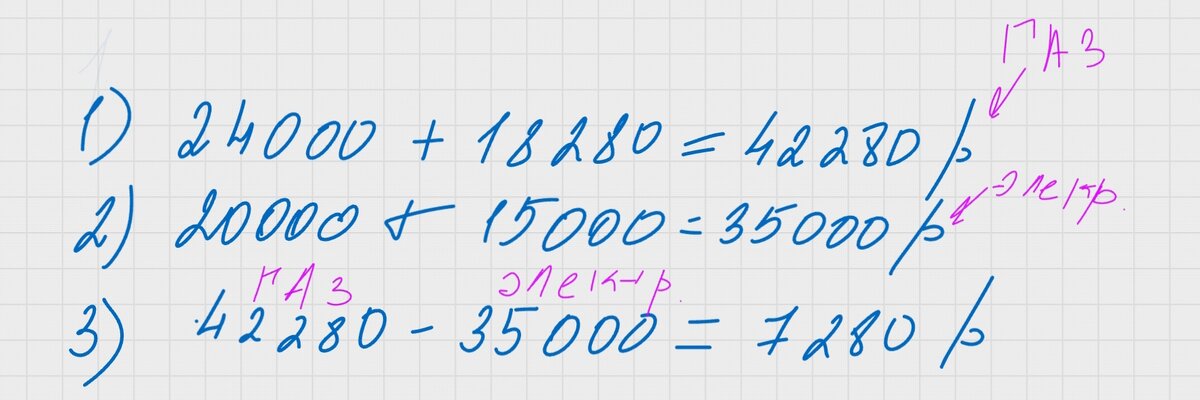 ГАЗ
1) 24000 + 18280 = 42280 р
электр.
2) 20000 + 15000 = 35000 р
ГАЗ электр.
3) 42280 - 35000 = 7280 р